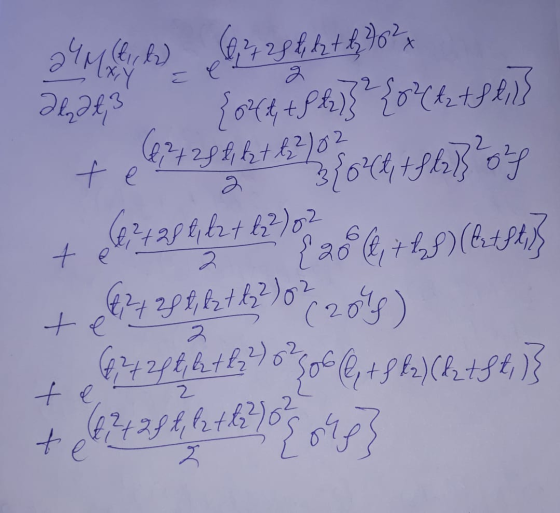 ∂⁴M_{x,y}(t₁,t₂)/∂t₂∂t₁³ = e^{(t₁²+2ρt₁t₂+t₂²)σ²/2} ×
{σ²(t₁+ρt₂)}² {σ²(t₂+ρt₁)}
+ e^{(t₁²+2ρt₁t₂+t₂²)σ²/2} 3{σ²(t₁+ρt₂)}² σ²ρ
+ e^{(t₁²+2ρt₁t₂+t₂²)σ²/2} {2σ⁶(t₁+t₂ρ)(t₂+ρt₁)}
+ e^{(t₁²+2ρt₁t₂+t₂²)σ²/2} (2σ⁴ρ)
+ e^{(t₁²+2ρt₁t₂+t₂²)σ²/2} {σ⁶(t₁+ρt₂)(t₂+ρt₁)}
+ e^{(t₁²+2ρt₁t₂+t₂²)σ²/2} {σ⁴ρ}